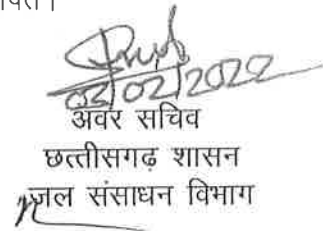 03/02/2022
अवर सचिव
छत्तीसगढ़ शासन
जल संसाधन विभाग